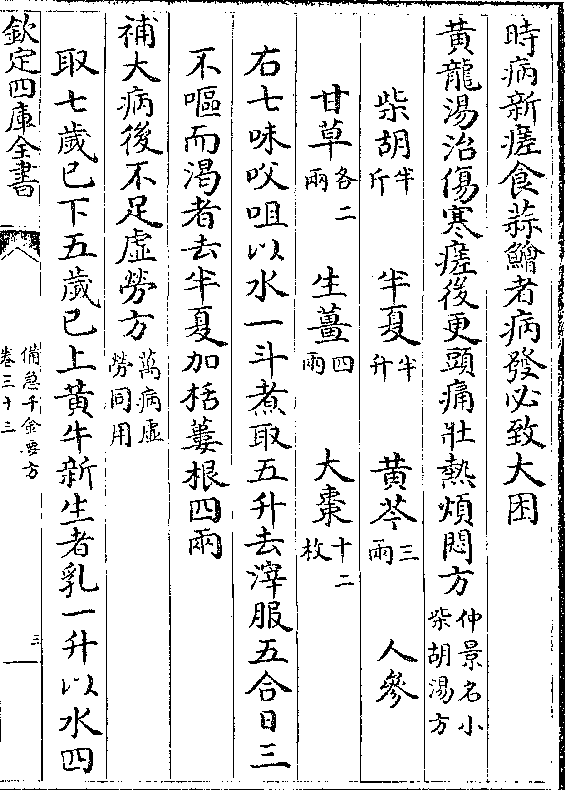 時病新瘥食蒜鱠者病發必致大困
黃龍湯治傷寒瘥後更頭痛壯熱煩悶方仲景名小柴胡湯方
柴胡半斤 半夏半升 黃芩三兩 人參
甘草各二兩 生薑四兩 大棗十二枚
右七味㕮咀以水一斗煮取五升去滓服五合日三
不嘔而渴者去半夏加栝蔞根四兩
補大病後不足虛勞方萬病虛勞同用
取七歲已下五歲已上黃牛新生者乳一升以水四
欽定四庫全書
備急千金要方
卷三十三
三